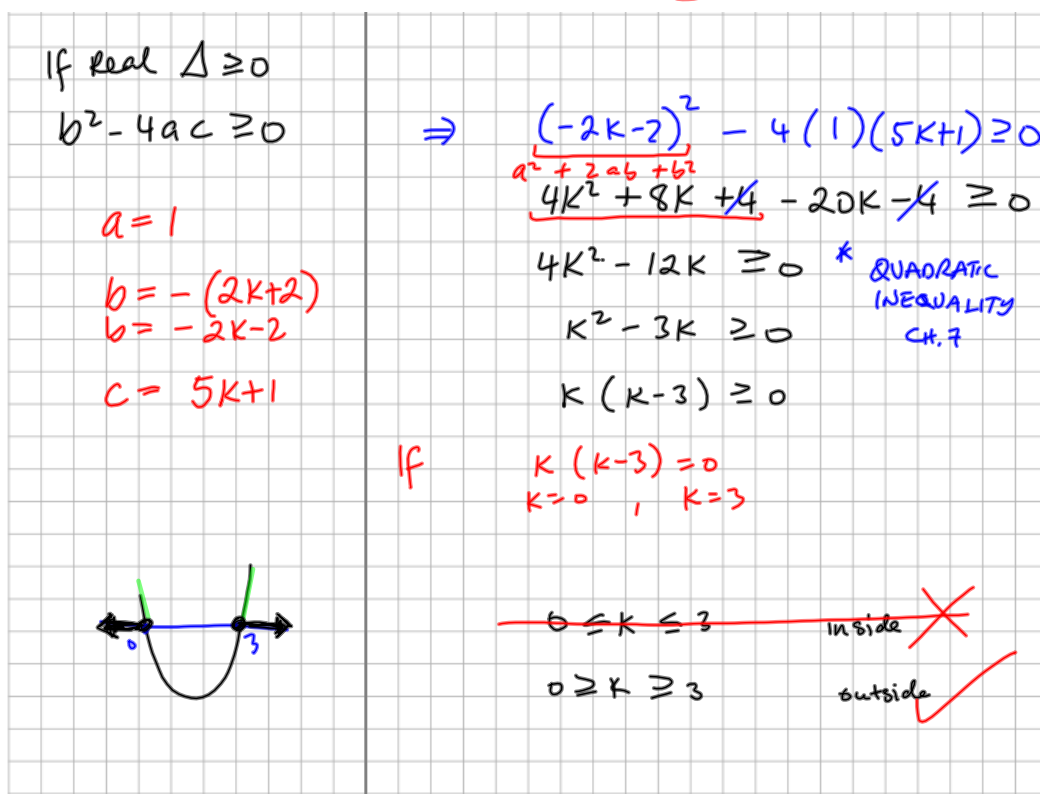 If Real Δ ≥ 0
b² - 4ac ≥ 0
a = 1
b = - (2k+2)
b = - 2k-2
c = 5k+1
⇒ (-2k-2)² - 4(1)(5k+1) ≥ 0
a² + 2ab + b²
4k² + 8k + 4 - 20k - 4 ≥ 0
4k² - 12k ≥ 0
* QUADRATIC
INEQUALITY
CH. 7
k² - 3k ≥ 0
k (k-3) ≥ 0
If k (k-3) = 0
k=0 , k=3
0 3
0 ≤ k ≤ 3 inside
0 ≥ k ≥ 3 outside